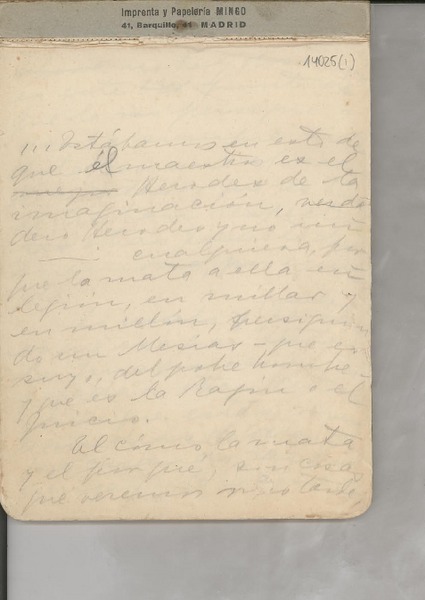 Imprenta y Papelería MINGO
41, Barquillo, 41 MADRID
14025(1)
... Estábamos en esto de
que él maestro es el
Herodes de la
imaginación, verda
dero Herodes y no un
cualquiera, por
que la mata a ella en
legión, en millar y
en millón, persiguien
do un Mesías - que es
suyo, del pobre hombre -
y que es la Razón o el
juicio.
El cómo la mata
y el por qué, son cosa
que veremos más tarde